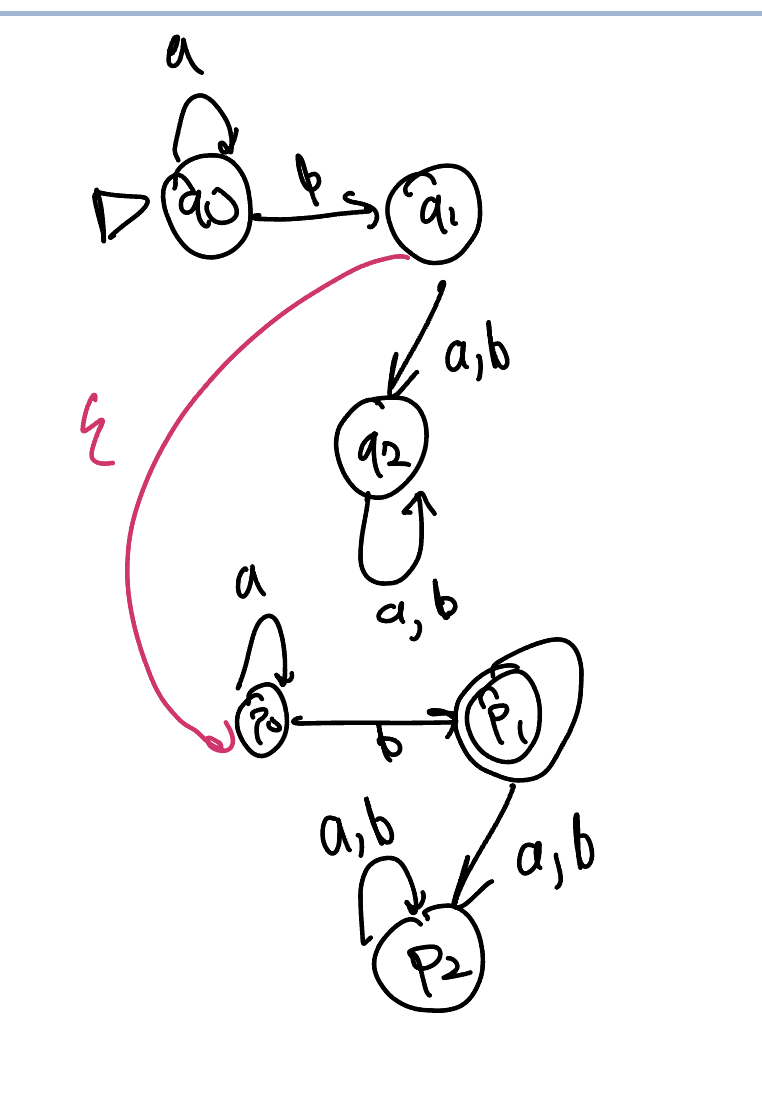 a
q0
b
q1
a,b
ε
q2
a, b
a
b
p1
a,b
a,b
p2